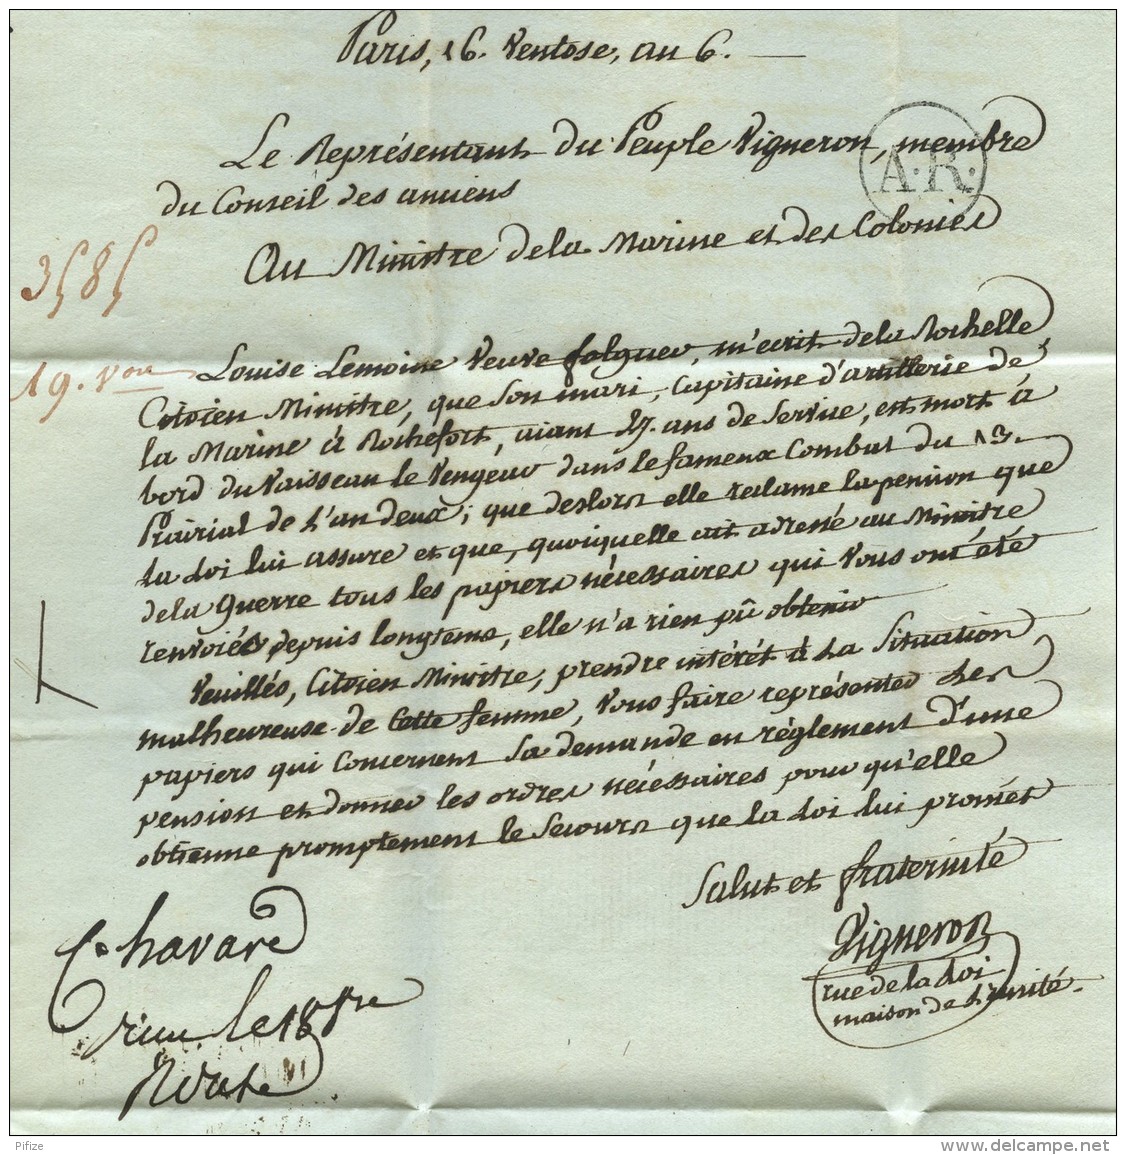 Paris, 16. Ventose, au 6.
Le Représentant du Peuple Vigneron, membre
A.R.
du Conseil des anciens
Au Ministre de la Marine et des Colonies
3585
19. Vose
Louise Lemoine Veuve folguer, m'écrit de la Rochelle
Citoien Ministre, que son mari, Capitaine d'artillerie de
la Marine à Rochefort, aiant 27. ans de Service, est mort à
bord du Vaisseau le Vengeur dans le fameux Combat du 13.
Prairial de L'an deux; que deslors elle reclame la pension que
la Loi lui assure et que, quoiquelle ait adressé au Ministre
de la Guerre tous les papiers nécessaires qui Vous ont été
renvoiés depuis longtems, elle n'a rien pû obtenir
Veuillés, Citoien Ministre, prendre intérêt à La Situation
malheureuse de Cette femme, Vous faire représenter Les
papiers qui Concernent Sa demande en règlement d'une
pension et donner les ordres nécessaires pour qu'elle
obtienne promptement le Secours que la Loi lui promet
Salut et fraternité
Vigneron
rue de la Loi
maison de L'unité.
le 18
Pifize
www.delcampe.net